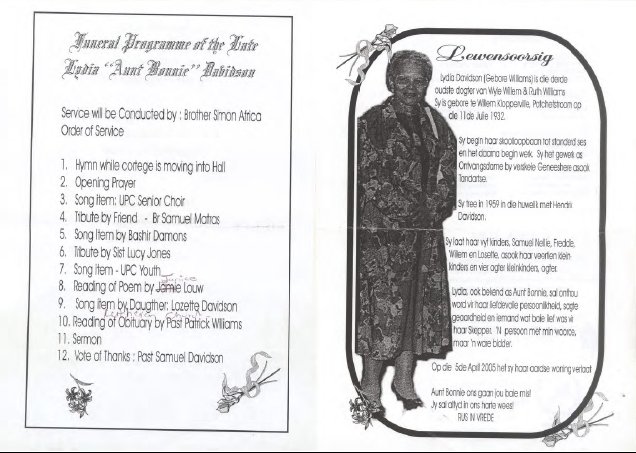 Funeral Programme of the Late
Lydia "Aunt Bonnie" Davidson
Service will be Conducted by : Brother Simon Africa
Order of Service
1. Hymn while cortege is moving into Hall
2. Opening Prayer
3. Song item: UPC Senior Choir
4. Tribute by Friend - Br Samuel Matros
5. Song Item by Bashir Damons
6. Tribute by Sist Lucy Jones
7. Song item - UPC Youth
8. Reading of Poem by Jamie Louw
9. Song item by Daugther: Lozette Davidson
10. Reading of Obituary by Past Patrick Williams
11. Sermon
12. Vote of Thanks : Past Samuel Davidson
Lewensoorsig
Lydia Davidson (Gebore Williams) is die derde
oudste dogter van Wyle Willem & Ruth Williams
Sy is gebore te Willem Klopperville, Potchefstroom op
die 11de Julie 1932.
Sy begin haar skooloopbaan tot standerd ses
en het daarna begin werk. Sy het gewerk as
Ontvangsdame by verskeie Geneeshere asook
Tandartse.
Sy tree in 1959 in die huwelik met Hendri
Davidson.
Sy laat haar vyf kinders, Samuel Nellie, Freddie,
Willem en Losette, asook haar veertien klein-
kinders en vier agter kleinkinders, agter.
Lydia, ook bekend as Aunt Bonnie, sal onthou
word vir haar liefdevolle persoonlikheid, sagte
geaardheid en iemand wat baie lief was vir
haar Skepper. 'N persoon met min woorde,
maar 'n ware bidder.
Op die 5de April 2005 het sy haar aardse woning verlaat
Aunt Bonnie ons gaan jou baie mis!
Jy sal altyd in ons harte wees!
RUS IN VREDE